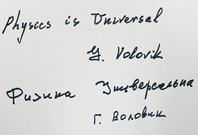 Physics is Universal
G. Volovik
Физика Универсальна
Г. Воловик